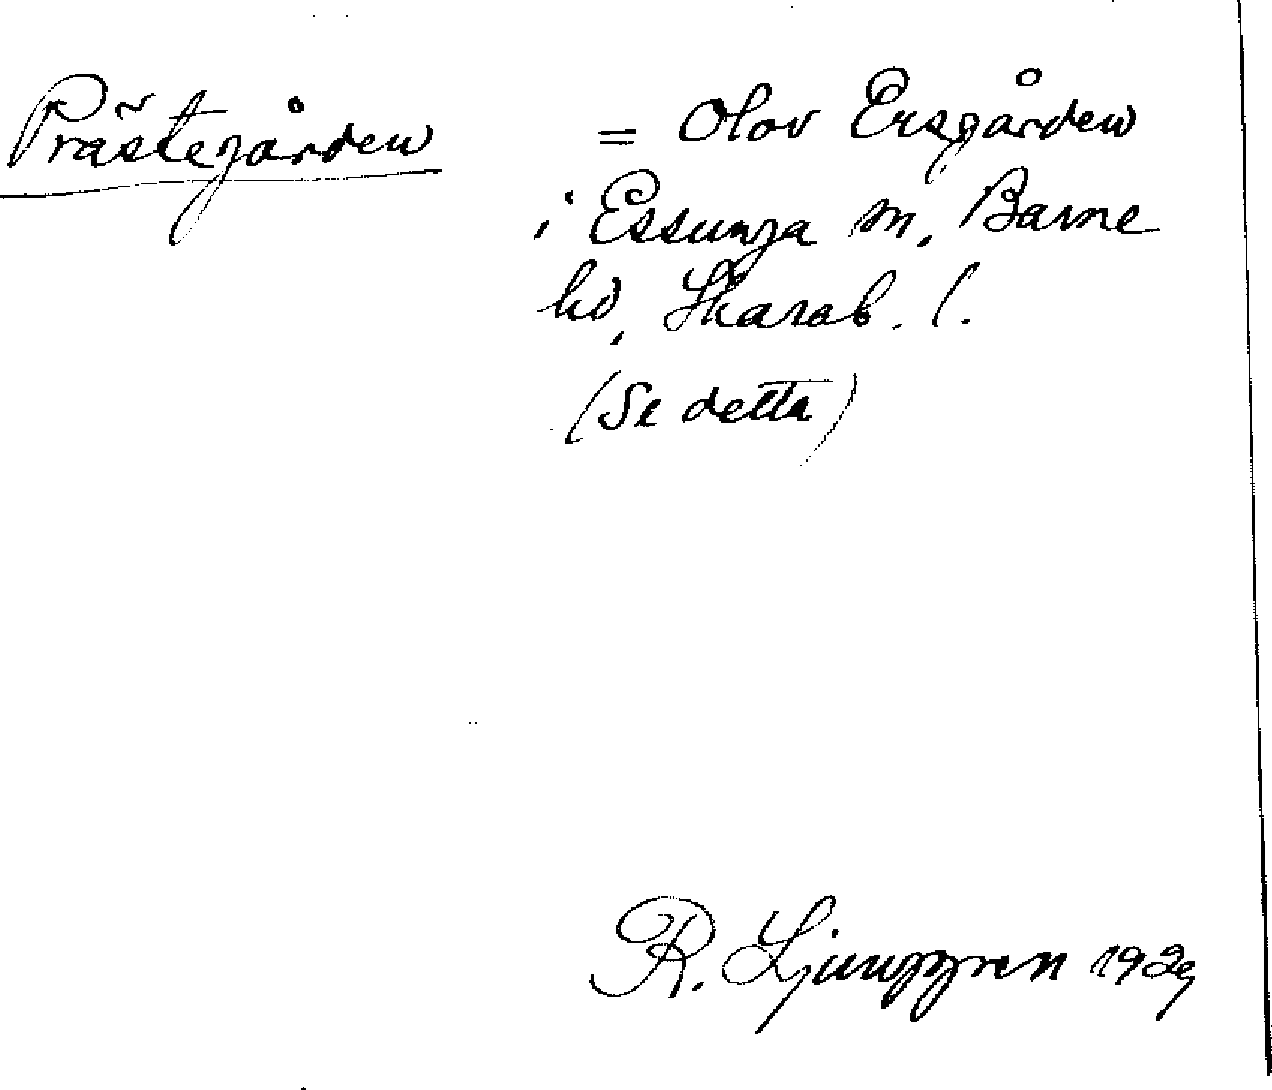 Prästegården = Olov Ersgården
i Essunga sn, Barne
hd, Skarab. l.
(Se detta)
R. Ljunggren 1929